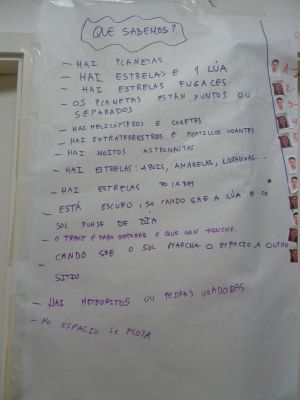 QUE SABEMOS?
- HAI PLANETAS
- HAI ESTRELAS E 1 LÚA
- HAI ESTRELAS FUGACES
- OS PLANETAS ESTÁN XUNTOS OU
SEPARADOS
- HAI HELICÓPTEROS E COHETES
- HAI EXTRATERRESTRES E PLATILLOS VOANTES
- HAI MOITOS ASTRONAUTAS
- HAI ESTRELAS: AZUIS, AMARELAS, LARANXAS...
- HAI ESTRELAS POLARES
- ESTÁ ESCURO, SO CANDO SAE A LÚA E CO
SOL PONSE DE DÍA
- O TRAXE É PARA RESPIRAR E QUE NON
CANDO SAE O SOL MARCHA O ESPACIO A OUTRO
SITIO
- HAI METEORITOS OU PEDRAS VOADORAS
- NO ESPACIO SE FLOTA